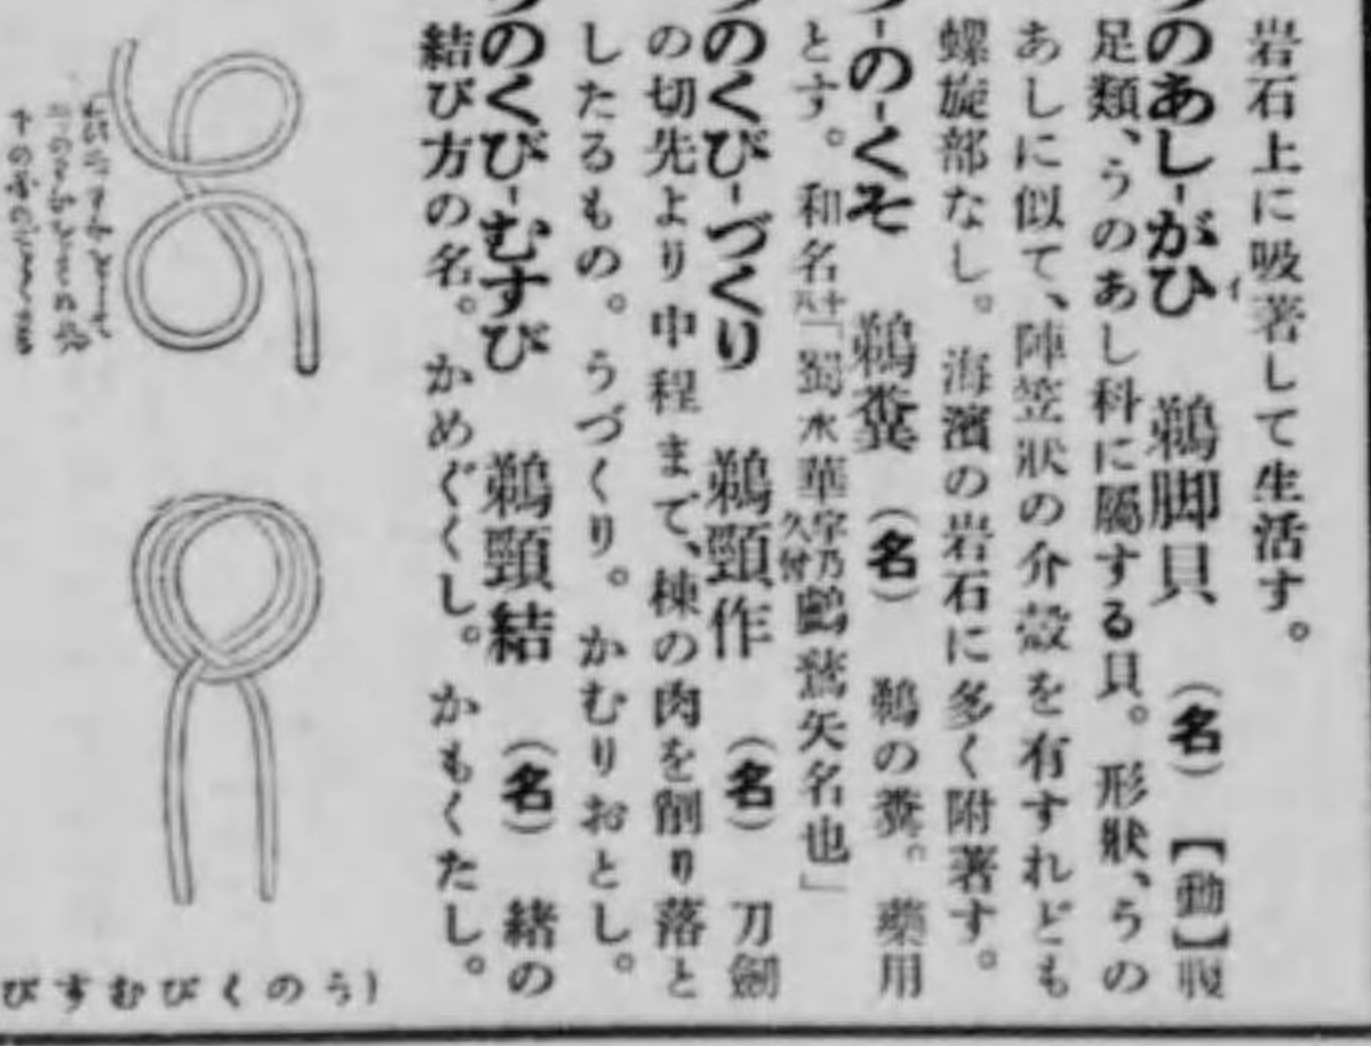 岩石上に吸著して生活す。
うのあし-がひ 鵜脚貝 (名) 【動】腹
イ
足類、うのあし科に屬する貝。形狀、うの
あしに似て、陣笠狀の介殼を有すれども
螺旋部なし。海濱の岩石に多く附著す。
う-の-くそ 鵜糞 (名) 鵜の糞。藥用
とす。和名十八「蜀水華宇乃久曾鸕鷀矢名也」
うのくび-づくり 鵜頸作 (名) 刀劍
の切先より中程まで、棟の肉を削り落と
したるもの。うづくり。かむりおとし。
うのくび-むすび 鵜頸結 (名) 緖の
結び方の名。かめぐくし。かもくたし。
(うのくびむすび